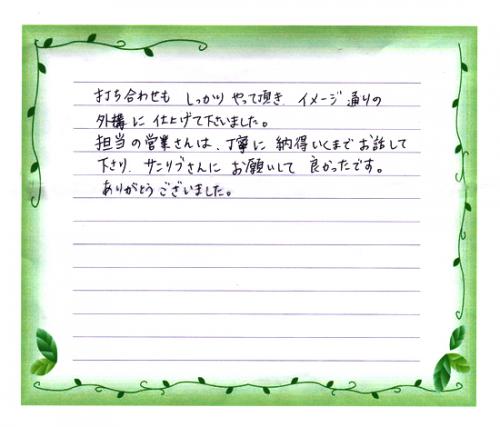 打ち合わせも しっかり やって頂き、イメージ通りの
外構に 仕上げて下さいました。
担当の営業さんは、丁寧に 納得いくまで お話して
下さり、サンリブさんに お願いして 良かったです。
ありがとうございました。